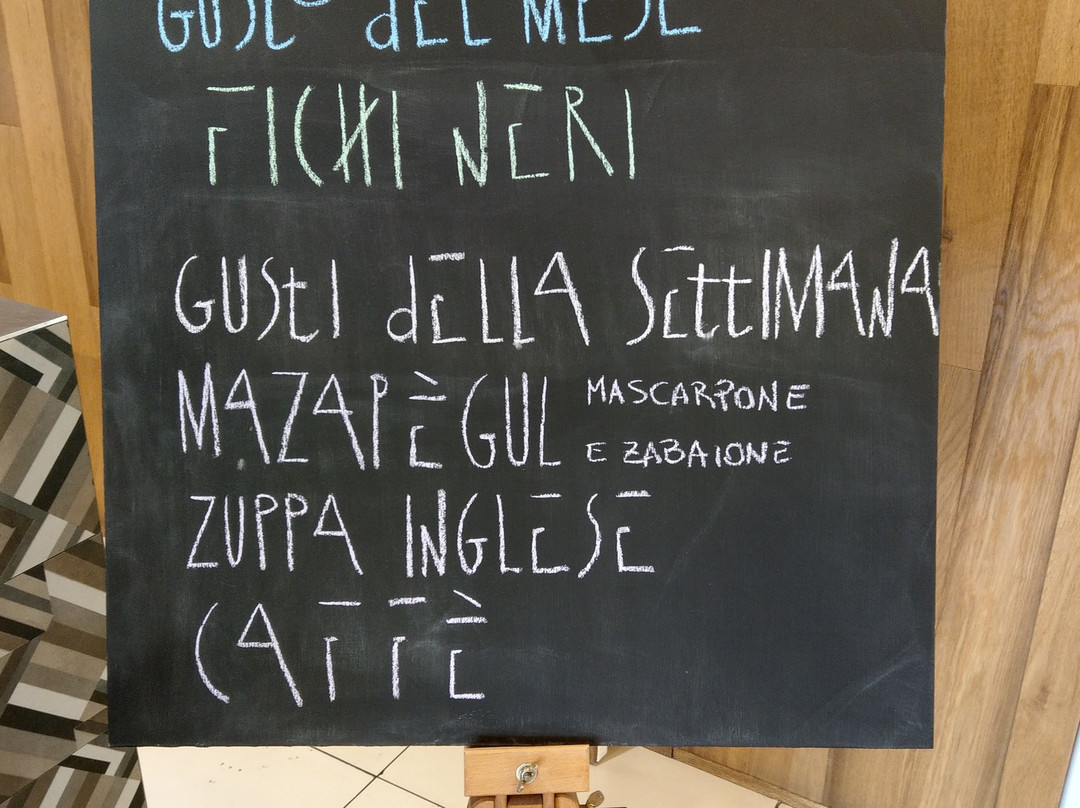 GUSTO dEL MESE
FICHI NERI
GUStI dELLA SEttIMANA
MAZAPÈGUL MASCARPONE
E ZABAIONE
ZUPPA INGLESE
CAFFÈ